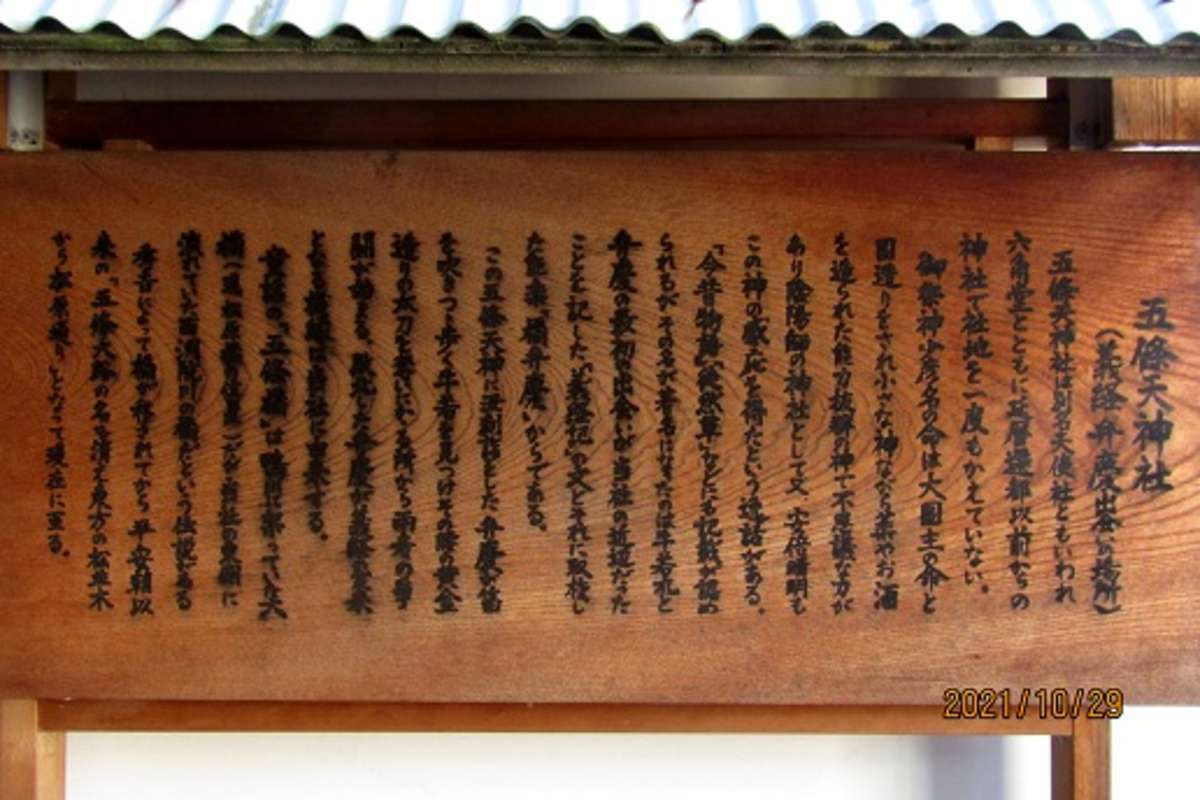 五條天神社
(義経・弁慶出会の場所)
五條天神社は別名天使社ともいわれ
六角堂とともに延暦遷都以前からの
神社で社地を一度もかえていない。
御祭神少彦名の命は大国主の命と
国造りをされ小さな神ながら薬やお酒
を造られた能力抜群の神で不思議な力が
あり陰陽師の神社として又、安倍晴明も
この神の感応を得たという逸話がある。
「今昔物語」「徒然草」などにも記載が認め
られるがその名が著名になったのは牛若丸と
弁慶の最初の出会いが当社の近辺だった
ことを記した「義経記」の文とそれに取材し
た能楽「橋弁慶」からである。
この五條天神に丑刻詣でした弁慶が笛
を吹きつつ歩く牛若を見つけその時の黄金
造りの太刀を奪いにかかる所から両者の争
闘が始まる。
とする
は当社に由来する。
の「五條橋」は
に架っていた大
橋
だが当社の東側に
流れていた西洞院川の橋だという伝説がある
秀吉によって橋が移されてから平安朝以
来の「五條大路」の名も消え東方の松並木
から松原通りとなって現在に至る。
2021/10/29